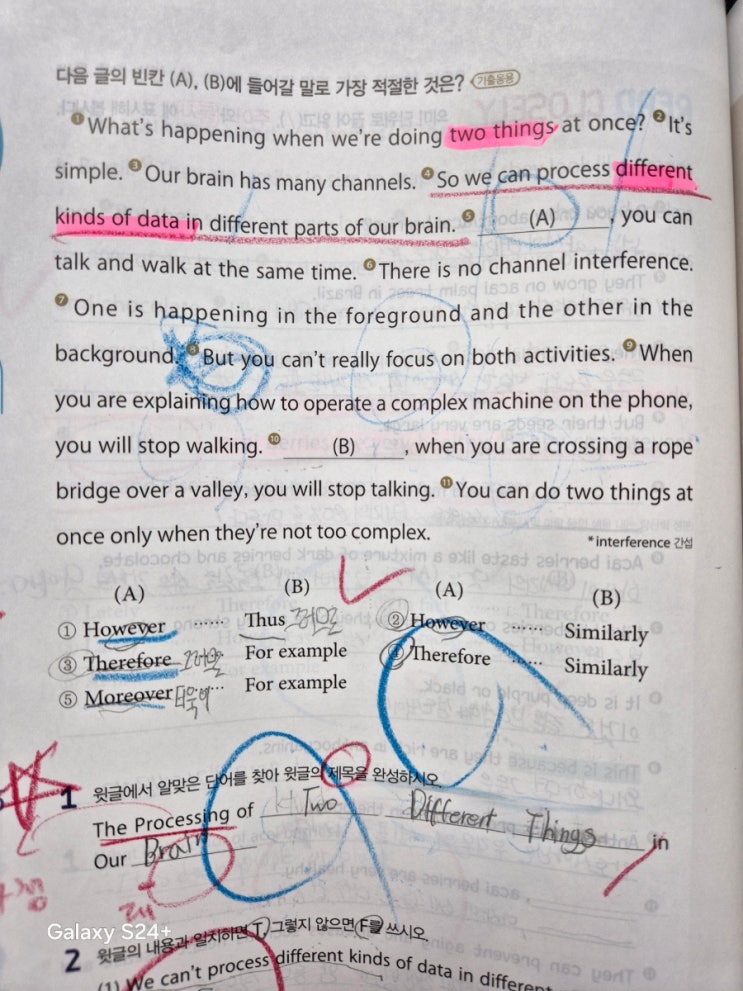 다음 글의 빈칸 (A), (B)에 들어갈 말로 가장 적절한 것은? 기출응용
❶ What's happening when we're doing two things at once? ❷ It's
simple. ❸ Our brain has many channels. ❹ So we can process different
kinds of data in different parts of our brain. ❺ (A) , you can
talk and walk at the same time. ❻ There is no channel interference.
❼ One is happening in the foreground and the other in the
background. ❽ But you can't really focus on both activities. ❾ When
you are explaining how to operate a complex machine on the phone,
you will stop walking. ❿ (B) , when you are crossing a rope
bridge over a valley, you will stop talking. ⓫ You can do two things at
once only when they're not too complex.
*interference 간섭
(A) (B) (A) (B)
① However ······ Thus ② However ······ Similarly
③ Therefore ······ For example ④ Therefore ······ Similarly
⑤ Moreover ······ For example
1 윗글에서 알맞은 단어를 찾아 윗글의 제목을 완성하시오.
The Processing of Two Different Things in
Our Brain
Galaxy S24+
2 윗글의 내용과 일치하면 T, 그렇지 않으면 F를 쓰시오.
(1) We can't process different kinds of data in different